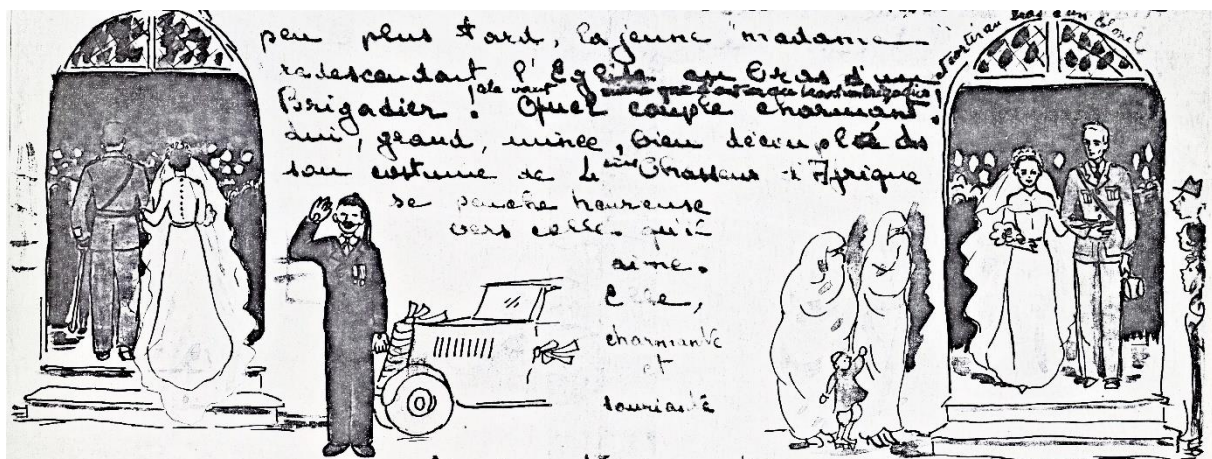 peu plus tard, la jeune madame
redescendant l'Eglise au bras d'un
Brigadier ! Quel couple charmant !
cela vaut mieux que
Lui, grand, mince, bien découplé ds
son costume de 4ème Chasseur d'Afrique
se penche heureuse
vers celle qu'il
aime.
Elle,
charmante
et
souriante
au bras d'un